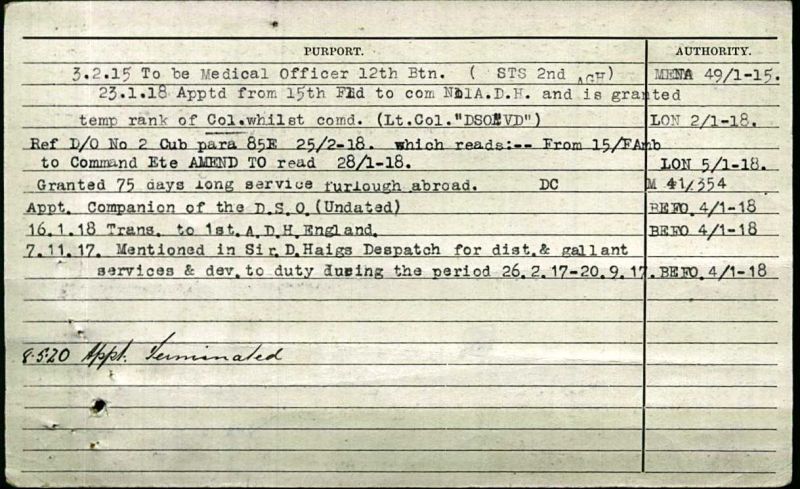 PURPORT. AUTHORITY.
3.2.15 To be Medical Officer 12th Btn. ( STS 2nd AGH) MENA 49/1-15.
23.1.18 Apptd from 15th Fld to com No1A.D.H. and is granted
temp rank of Col.whilst comd. (Lt.Col."DSO.VD") LON 2/1-18.
Ref D/O No 2 Cub para 85E 25/2-18. which reads:-- From 15/FAmb
to Command Ete AMEND TO read 28/1-18. LON 5/1-18.
Granted 75 days long service furlough abroad. DC M 41/354
Appt. Companion of the D.S.O.(Undated) BEFO.4/1-18
16.1.18 Trans. to 1st.A.D.H.England. BEFO.4/1-18
7.11.17. Mentioned in Sir.D.Haigs Despatch for dist.& gallant
services & dev.to duty during the period 26.2.17-20.9.17. BEFO.4/1-18
8.5.20 Appt. Terminated